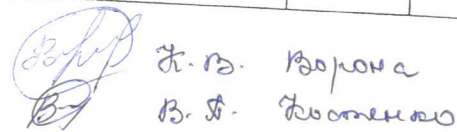 К. В. Ворона
В. А. Костенко